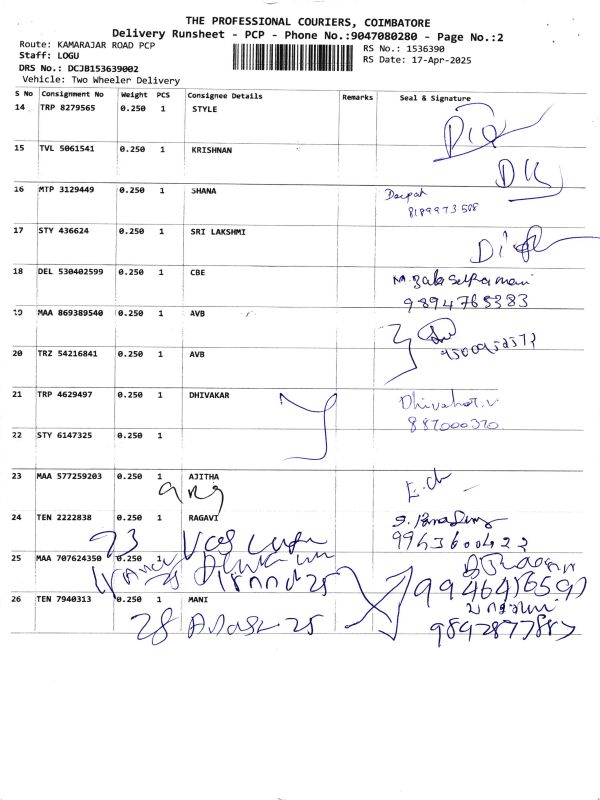 THE PROFESSIONAL COURIERS, COIMBATORE
Delivery Runsheet - PCP - Phone No.:9047080280 - Page No.:2
Route: KAMARAJAR ROAD PCP
RS No.: 1536390
Staff: LOGU
RS Date: 17-Apr-2025
DRS No.: DCJB153639002
Vehicle: Two Wheeler Delivery
S No Consignment No Weight PCS Consignee Details Remarks Seal & Signature
14 TRP 8279565 0.250 1 STYLE
15 TVL 5061541 0.250 1 KRISHNAN
16 MTP 3129449 0.250 1 SHANA Deepak
8189973588
17 STY 436624 0.250 1 SRI LAKSHMI
18 DEL 530402599 0.250 1 CBE
9894765383
19 MAA 869389540 0.250 1 AVB
9500952573
20 TRZ 54216841 0.250 1 AVB
21 TRP 4629497 0.250 1 DHIVAKAR Dhivahar.v
887000370
22 STY 6147325 0.250 1
23 MAA 577259203 0.250 1 AJITHA
24 TEN 2222838 0.250 1 RAGAVI
9943600422
25 MAA 707624350 0.250 1
26 TEN 7940313 0.250 1 MANI
9842877887